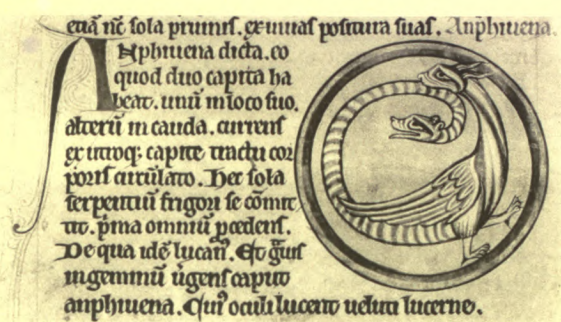 etiā nc̄ sola prunis. ex uuas positura suas. Anp̄hiuena.
Anphiuena dicta. eo
quod duo capita ha
beat. unū in loco suo.
alterū in cauda. currens
ex utroq; capite tractu cor
poris circulato. Hec sola
serpentiū frigori se cōmit
tit. p̄ma omniū p̄cedens.
De qua idē lucan̄. Et g̃uis
in geminū ũgens caput
anphiuena. Cui' oculi lucent ueluti lucerne.